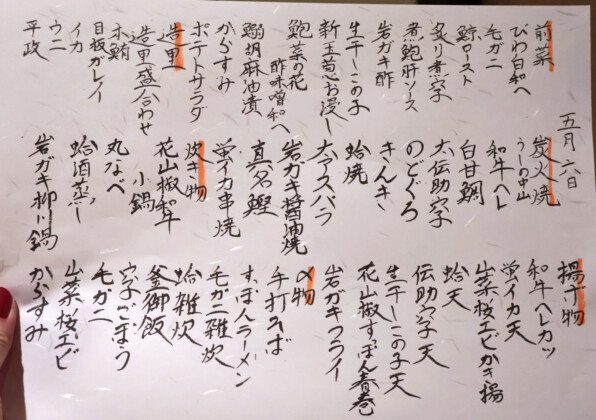 五月六日
前菜
びわ白和へ
毛ガニ
鯨ロースト
炙り煮穴子
煮鮑肝ソース
岩ガキ酢
生干しこの子
新玉葱お浸し
鮑菜の花
酢味噌和へ
鰯胡麻油漬
からすみ
ポテトサラダ
造里
造里盛合わせ
本鮪
目板ガレイ
イカ
ウニ
平政
炭火焼
うしの中山
和牛ヘレ
白甘鯛
大伝助穴子
のどぐろ
きんき
蛤焼
大アスパラ
岩ガキ醤油焼
真名鰹
蛍イカ串焼
炊き物
花山椒和牛
小鍋
丸なべ
蛤酒蒸し
岩ガキ柳川鍋
揚げ物
和牛ヘレカツ
蛍イカ天
山菜桜エビかき揚
蛤天
伝助穴子天
生干しこの子天
花山椒すっぽん春巻
岩ガキフライ
〆物
手打そば
すっぽんラーメン
毛ガニ雑炊
蛤雑炊
釜御飯
穴子ごぼう
毛ガニ
山菜桜エビ
からすみ